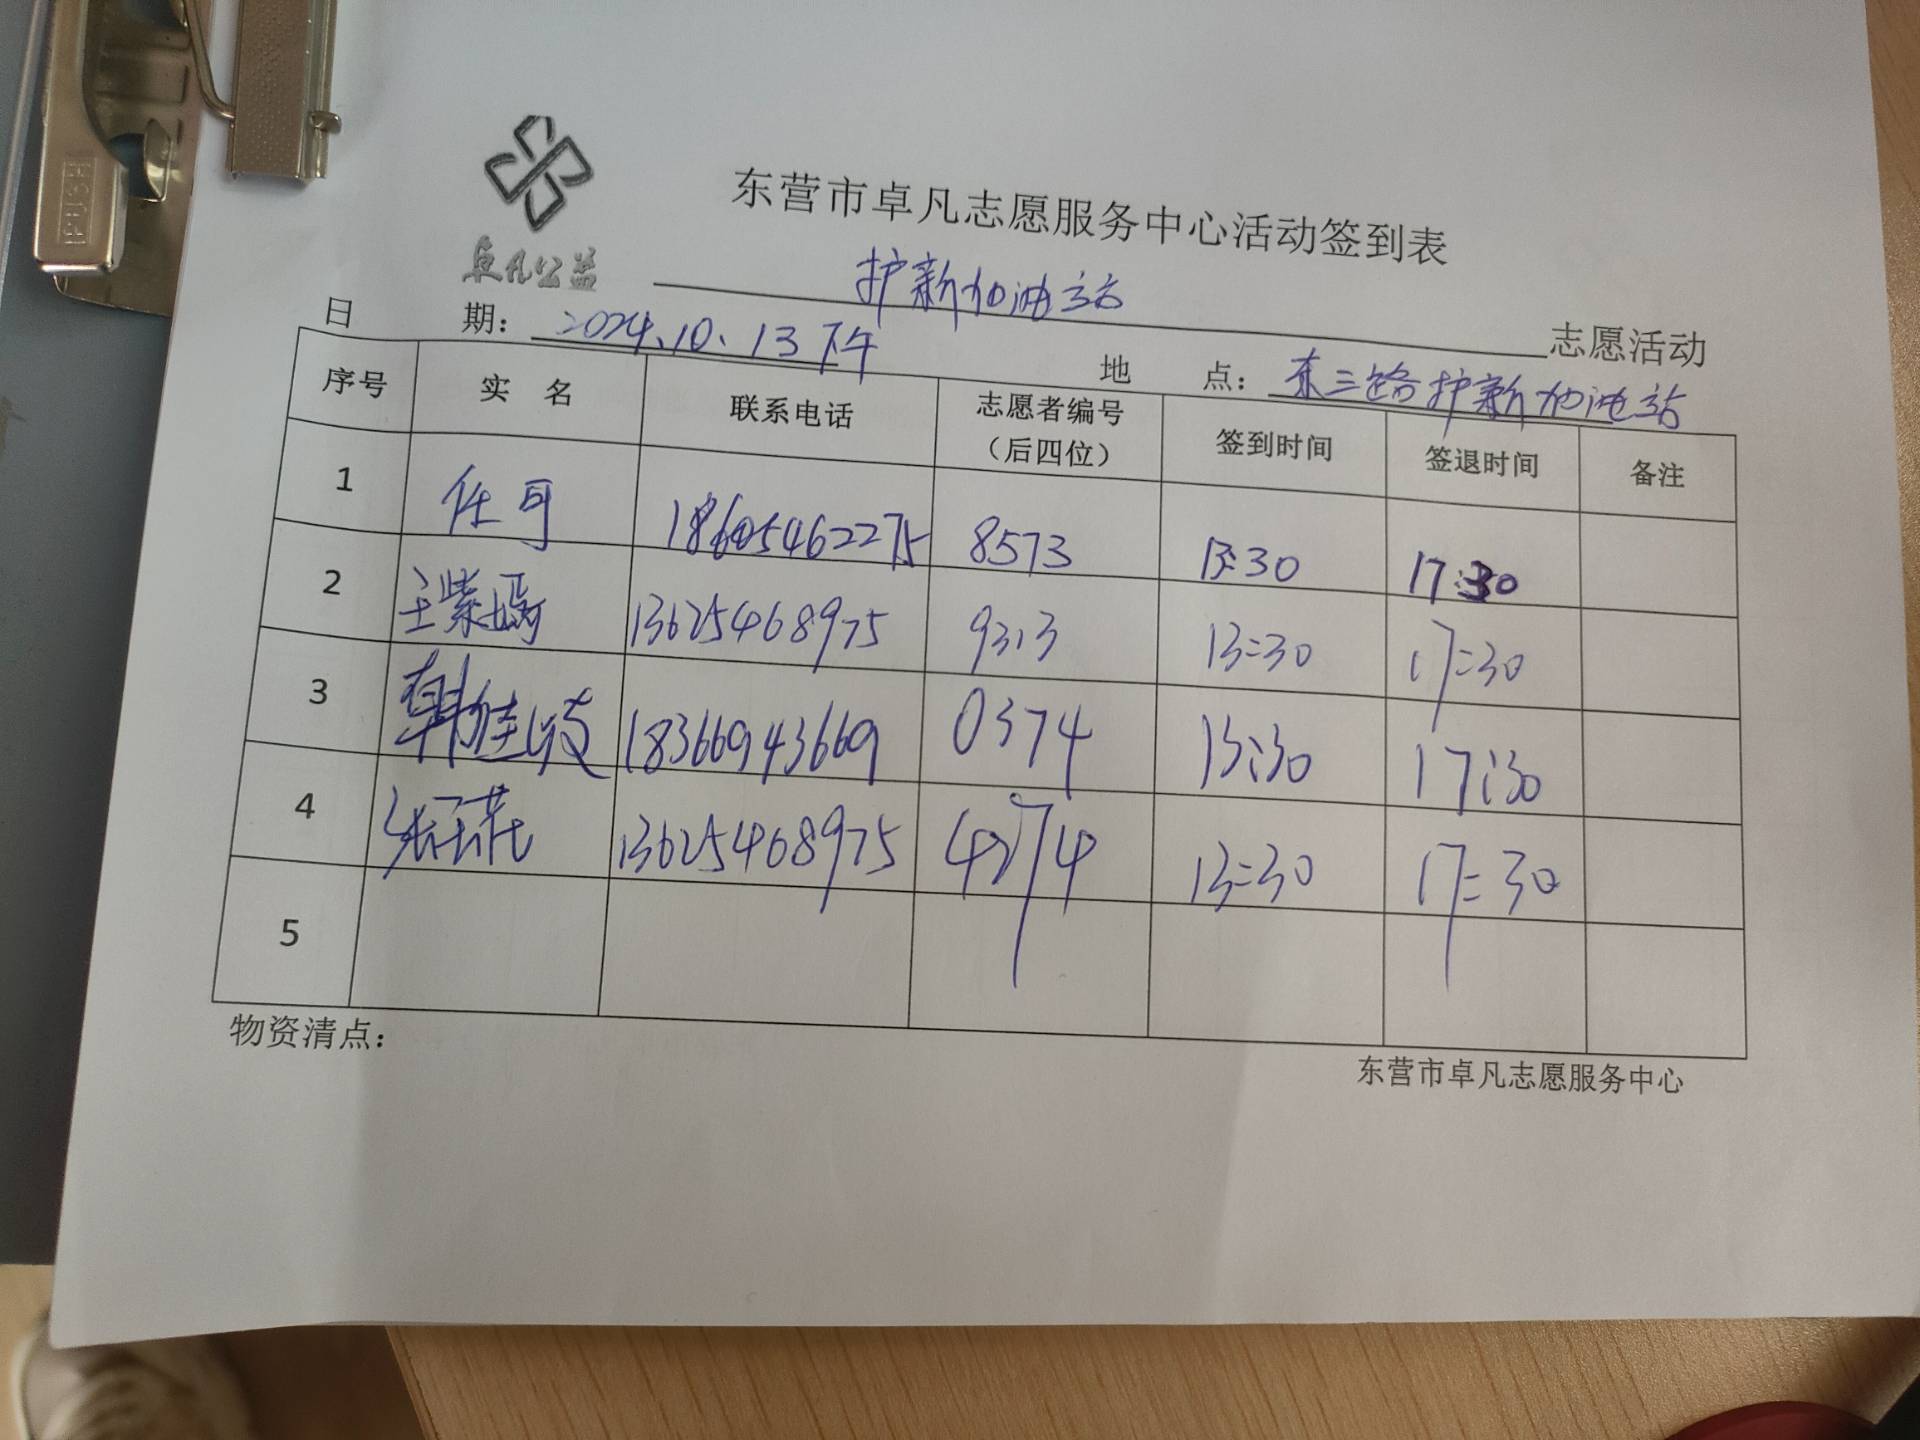 东营市卓凡志愿服务中心活动签到表
卓凡公益
护新加油站 志愿活动
日 期：2024.10.13下午 地 点：东三路护新加油站
序号 实 名 联系电话 志愿者编号（后四位） 签到时间 签退时间 备注
1 任可 18605462275 8573 13:30 17:30
2 王紫嫣 13625468975 9313 13:30 17:30
3 18366943669 0374 13:30 17:30
4 13625468975 4274 13:30 17:30
5
物资清点：
东营市卓凡志愿服务中心